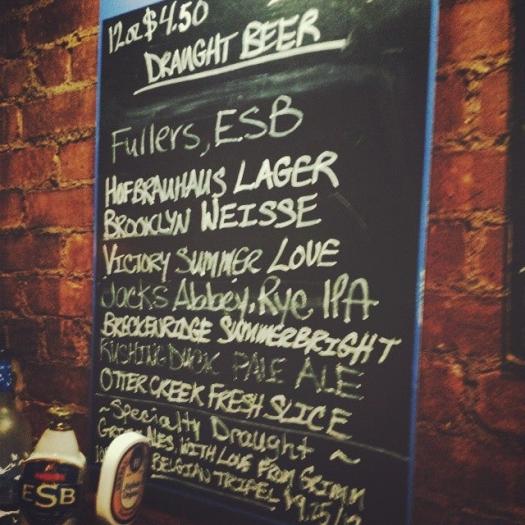 12oz $4.50
DRAUGHT BEER
Fullers, ESB
HOFBRAUHAUS LAGER
BROOKLYN WEISSE
VICTORY SUMMER LOVE
Jacks Abbey, Rye IPA
BRECKENRIDGE SUMMERBRIGHT
PALE ALE
OTTER CREEK FRESH SLICE
~Specialty Draught~
ALES, WITH LOVE FROM GRIMM
BELGIAN TRIPEL $9.25
ESB